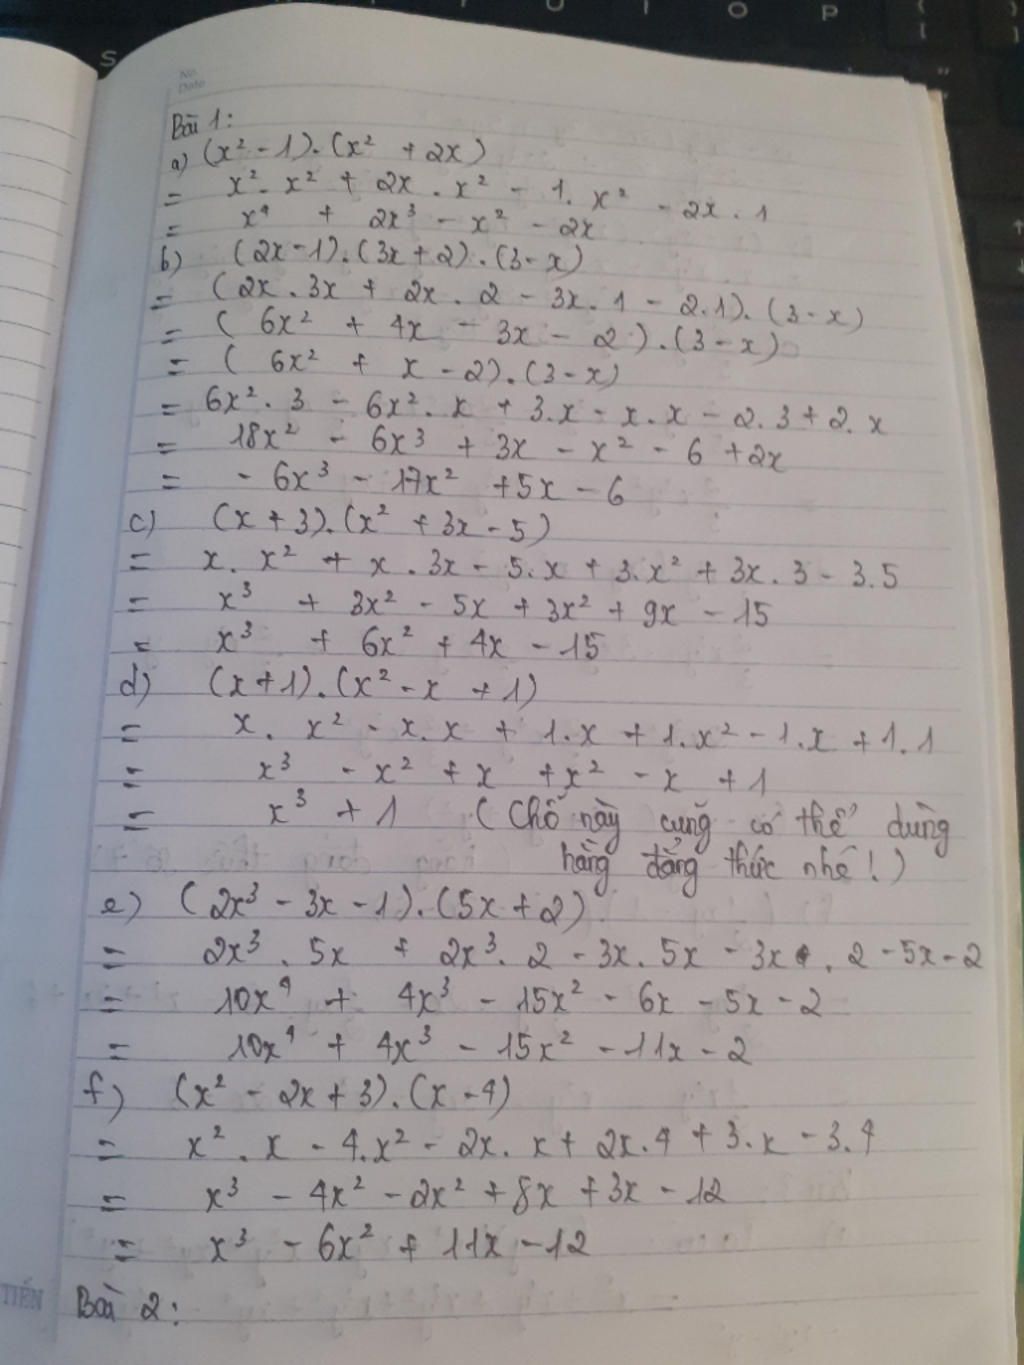 No.
Date
Bài 1:
a) (x² - 1).(x² + 2x)
= x². x² + 2x . x² - 1. x² - 2x . 1
= x⁴ + 2x³ - x² - 2x
b) (2x - 1).(3x + 2).(3 - x)
= (2x . 3x + 2x . 2 - 3x . 1 - 2.1).(3 - x)
= (6x² + 4x - 3x - 2).(3 - x)
= (6x² + x - 2).(3 - x)
= 6x² . 3 - 6x² . x + 3.x - x.x - 2.3 + 2.x
= 18x² - 6x³ + 3x - x² - 6 + 2x
= - 6x³ - 17x² + 5x - 6
c) (x + 3).(x² + 3x - 5)
= x. x² + x . 3x - 5.x + 3.x² + 3x . 3 - 3.5
= x³ + 3x² - 5x + 3x² + 9x - 15
= x³ + 6x² + 4x - 15
d) (x + 1).(x² - x + 1)
= x . x² - x.x + 1.x + 1.x² - 1.x + 1.1
= x³ - x² + x + x² - x + 1
= x³ + 1 (Chỗ này cũng có thể dùng
hằng đẳng thức nhé!)
e) (2x³ - 3x - 1).(5x + 2)
= 2x³ . 5x + 2x³ . 2 - 3x . 5x - 3x . 2 - 5x - 2
= 10x⁴ + 4x³ - 15x² - 6x - 5x - 2
= 10x⁴ + 4x³ - 15x² - 11x - 2
f) (x² - 2x + 3).(x - 4)
= x² . x - 4.x² - 2x . x + 2x.4 + 3.x - 3.4
= x³ - 4x² - 2x² + 8x + 3x - 12
= x³ - 6x² + 11x - 12
TIẾN
Bài 2: